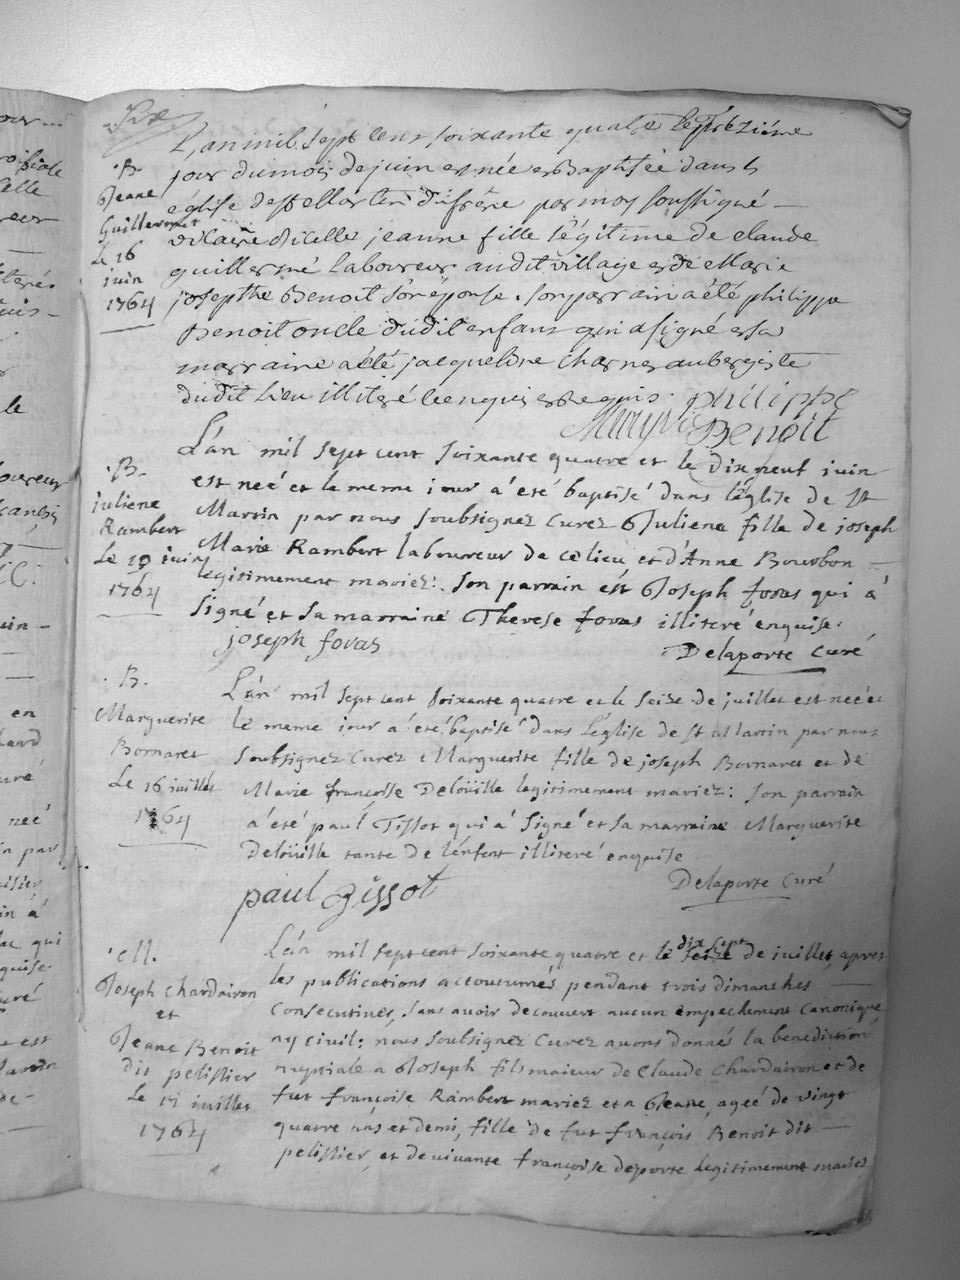 B.
Jeane
Guillermet
Le 16
juin
1764
L'an mil sept cens soixante quatre le seizième
jour du mois de juin est née et Baptisée dans
église de st Martin par moy soussigné
vicaire d'icelle jeanne fille légitime de claude
guillermé laboureur audit village et de Marie
josepthe Benoit son éponse. son parrain a été philippe
Benoit oncle dudit enfant qui a signé et sa
marraine a été jacqueline
dudit lieu illiteré enquis et requis. philippe
Benoit
B.
juliene
Rambert
Le 19 juin
1764
L'an mil sept cent soixante quatre et le dix neuf juin
est neé et le meme iour a été baptisé dans l'église de St
Martin par nous soubsignez curez Juliene fille de joseph
Marie Rambert laboureur de ce lieu et d'Anne Bourbon
legitimement mariez: Son parrain est Joseph foras qui à
Signé et sa marraine Therese foras illiteré enquise.
joseph foras
Delaporte curé
B.
Marguerite
Bornaret
Le 16 juillet
1764
L'an mil sept cent soixante quatre et le seize de juillet est neé et
le meme iour a été baptisé dans l'église de St Martin par nous
soubsignez curez Marguerite fille de joseph Bornaret et de
Marie françoise Deloüille legitimement mariez: Son parrain
à été paul Tissot qui à Signé et sa marraine Marguerite
Deloüille tante de l'enfent illiteré enquise
paul Tissot
Delaporte curé
M.
Joseph Chardairon
et
Jeane Benoit
dit pelissier
Le 17 juillet
1764
L'an mil sept cent soixante quatre et le seize dix sept de juillet, apres
les publications accoutumés pendant trois dimanches
consecutives, sans avoir decouvert aucun empechement canonique
ny civil; nous soubsignez curez avons donnés la benediction
nuptiale a Joseph fils maieur de Claude Chardairon et de
fut françoise Rambert mariez et a Jeane, ageé de vingt
quatre ans et demi, fille de fut françois Benoit dit
pelissier, et de vivante françoise deporte legitimement mariés